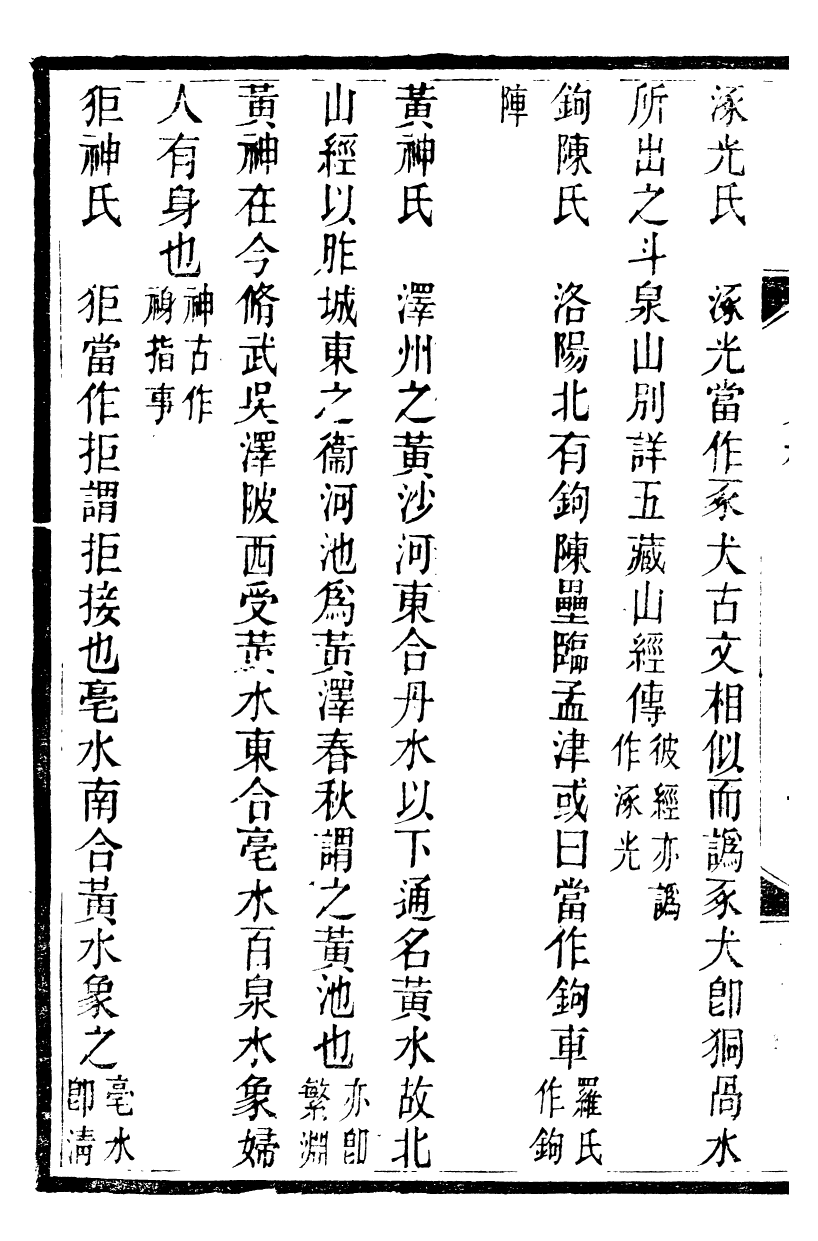 涿光氏　涿光當作豖犬古文相似而譌豖犬卽狪咼水
所出之斗泉山別詳五藏山經傳彼經亦譌作涿光
鉤陳氏　洛陽北有鉤陳壘臨孟津或曰當作鉤車羅氏作鉤
陣
黃神氏　澤州之黃沙河東合丹水以下通名黃水故北
山經以胙城東之衞河池爲黃澤春秋謂之黃池也亦卽繁淵
黃神在今脩武吳澤陂西受黃水東合亳水百泉水象婦
人有身也神古作䄕指事
犯神氏　犯當作拒謂拒接也亳水南合黃水象之亳水卽淸